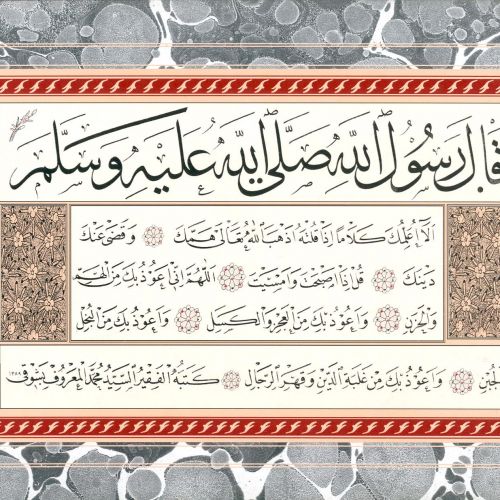 قال رسول الله صلى الله عليه وسلم
ألا أعلمك كلاما إذا قلته أذهب الله تعالى همك وقضى عنك
دينك قل إذا أصبحت وأمسيت اللهم إني أعوذ بك من الهم
والحزن وأعوذ بك من العجز والكسل وأعوذ بك من البخل
والجبن وأعوذ بك من غلبة الدين وقهر الرجال كتبه الفقير السيد محمد المعروف بشوقي